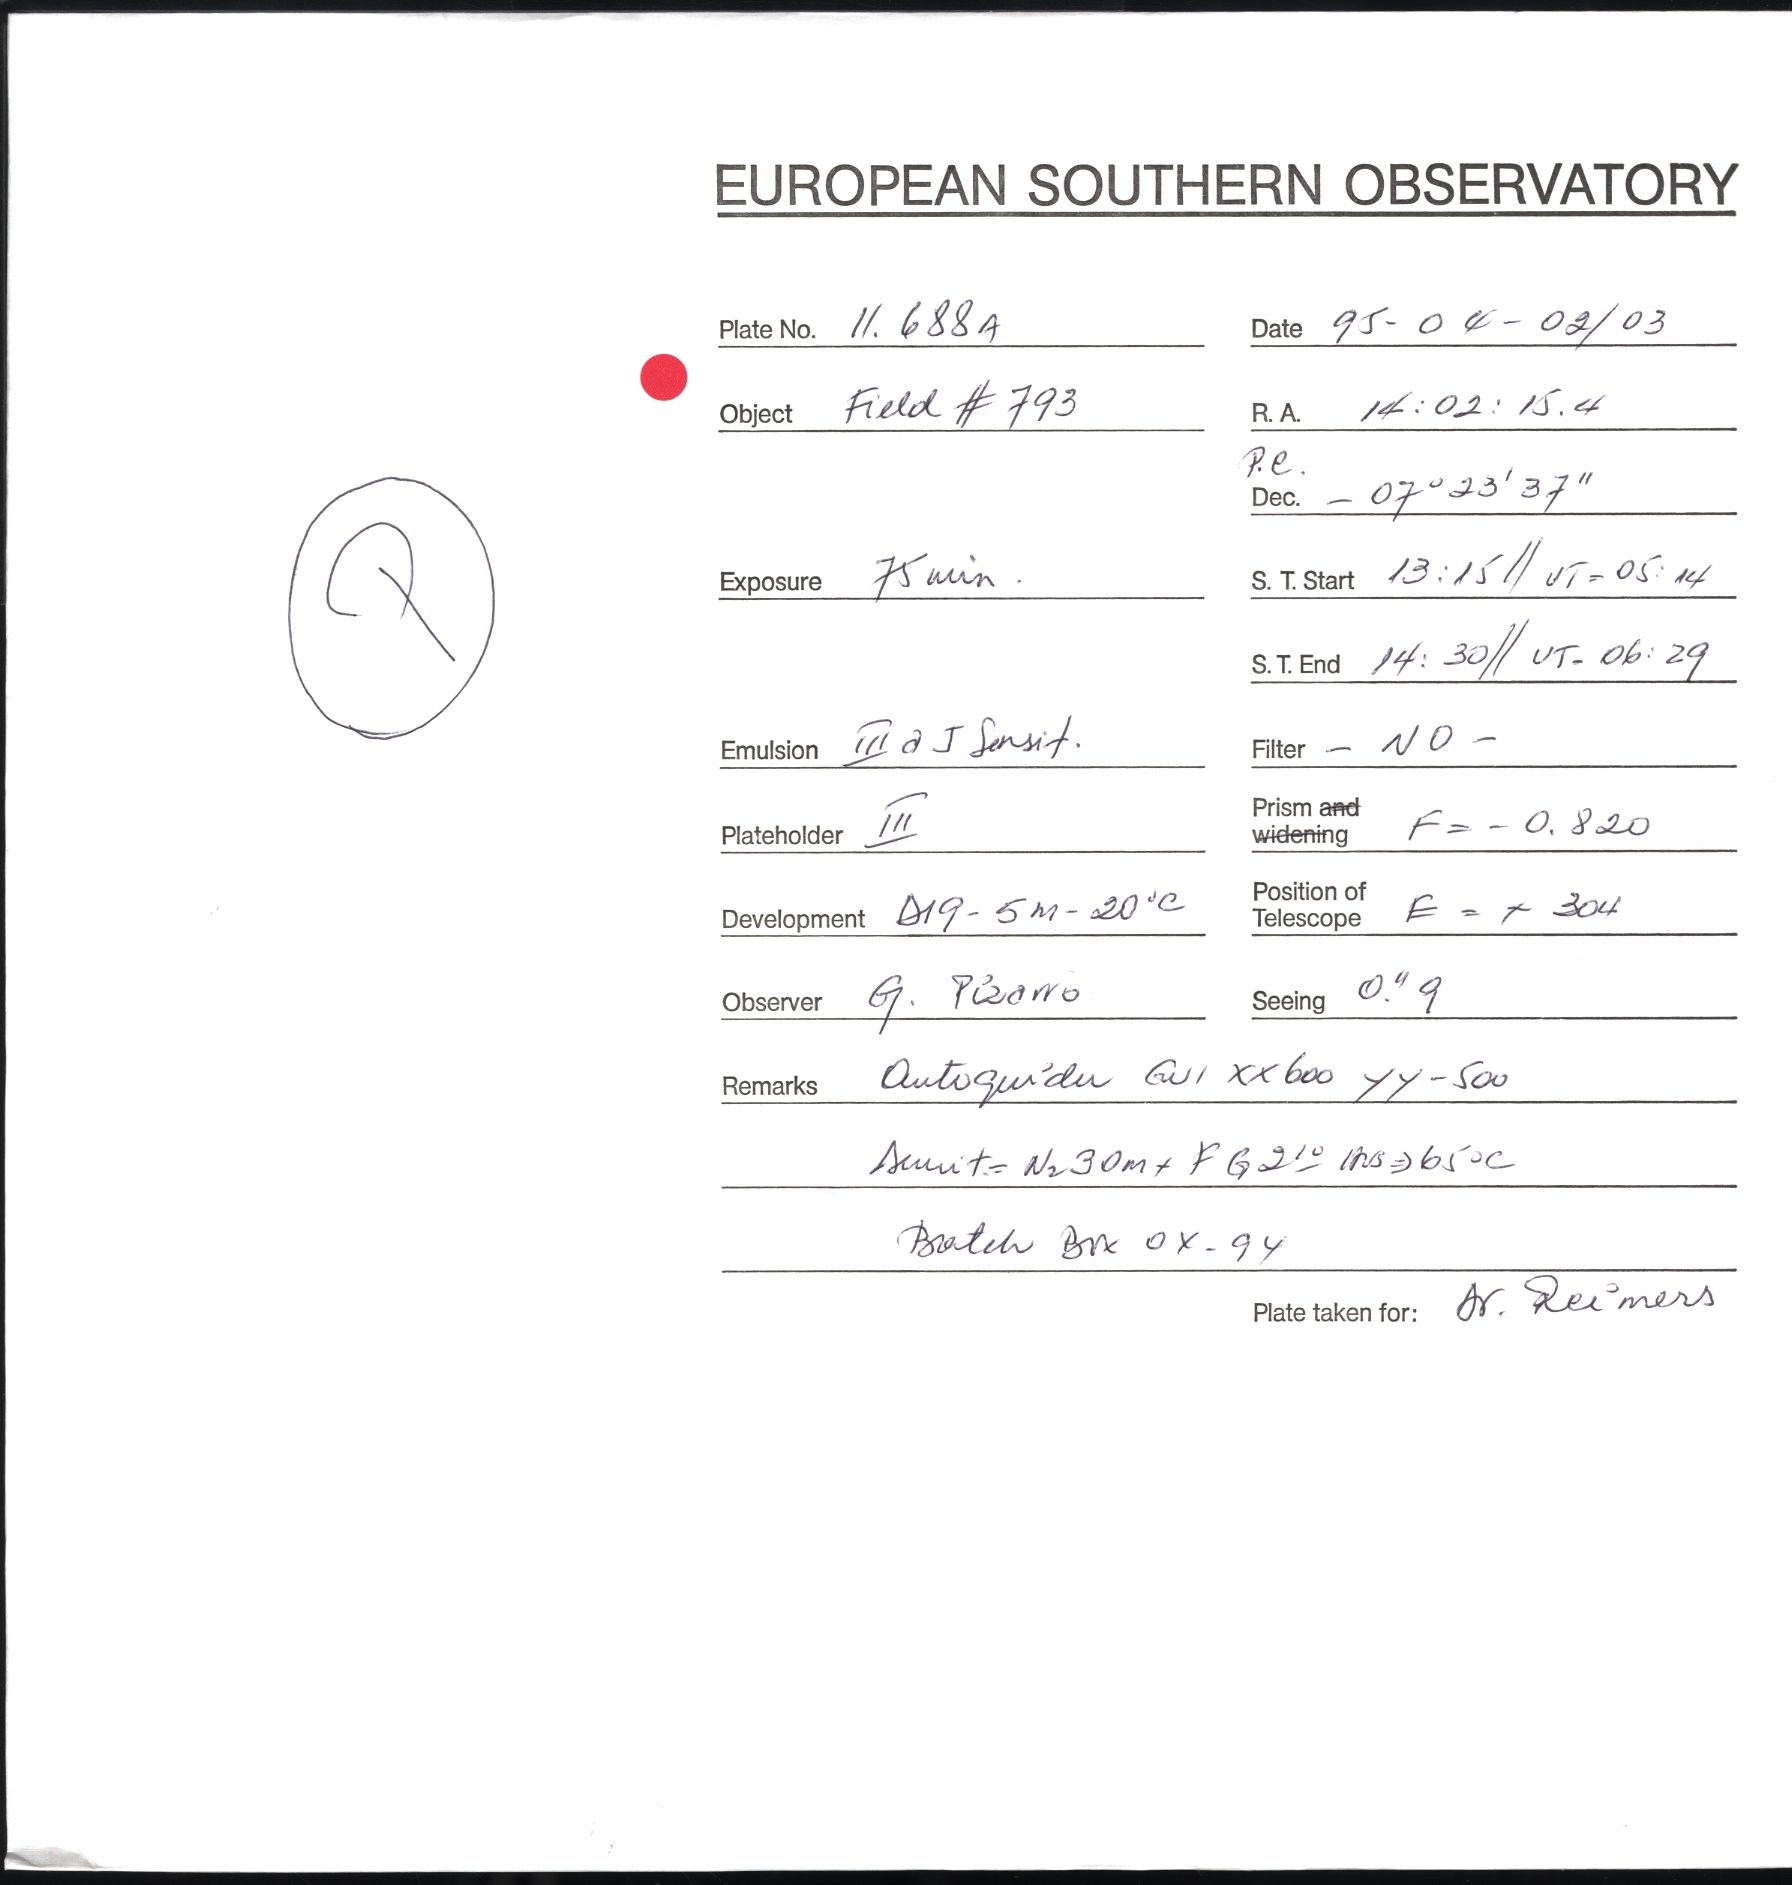 EUROPEAN SOUTHERN OBSERVATORY
Plate No. 11.688A Date 95-04-02/03
Object Field # 793 R. A. 14:02:15.4
P.C.
Dec. - 07° 23' 37"
Exposure 75 min. S. T. Start 13:15// UT= 05:14
S. T. End 14:30// UT- 06:29
Emulsion III a J Sensit. Filter - NO -
Plateholder III Prism and widening F= - 0.820
Development D19- 5m- 20°C Position of Telescope E = + 304
Observer G. Pizarro Seeing 0."9
Remarks Autoguider GUI XX600 YY-500
N2 30m + F G 2 65°C
Batch Box 0X-94
Plate taken for: Dr. Reimers
Q